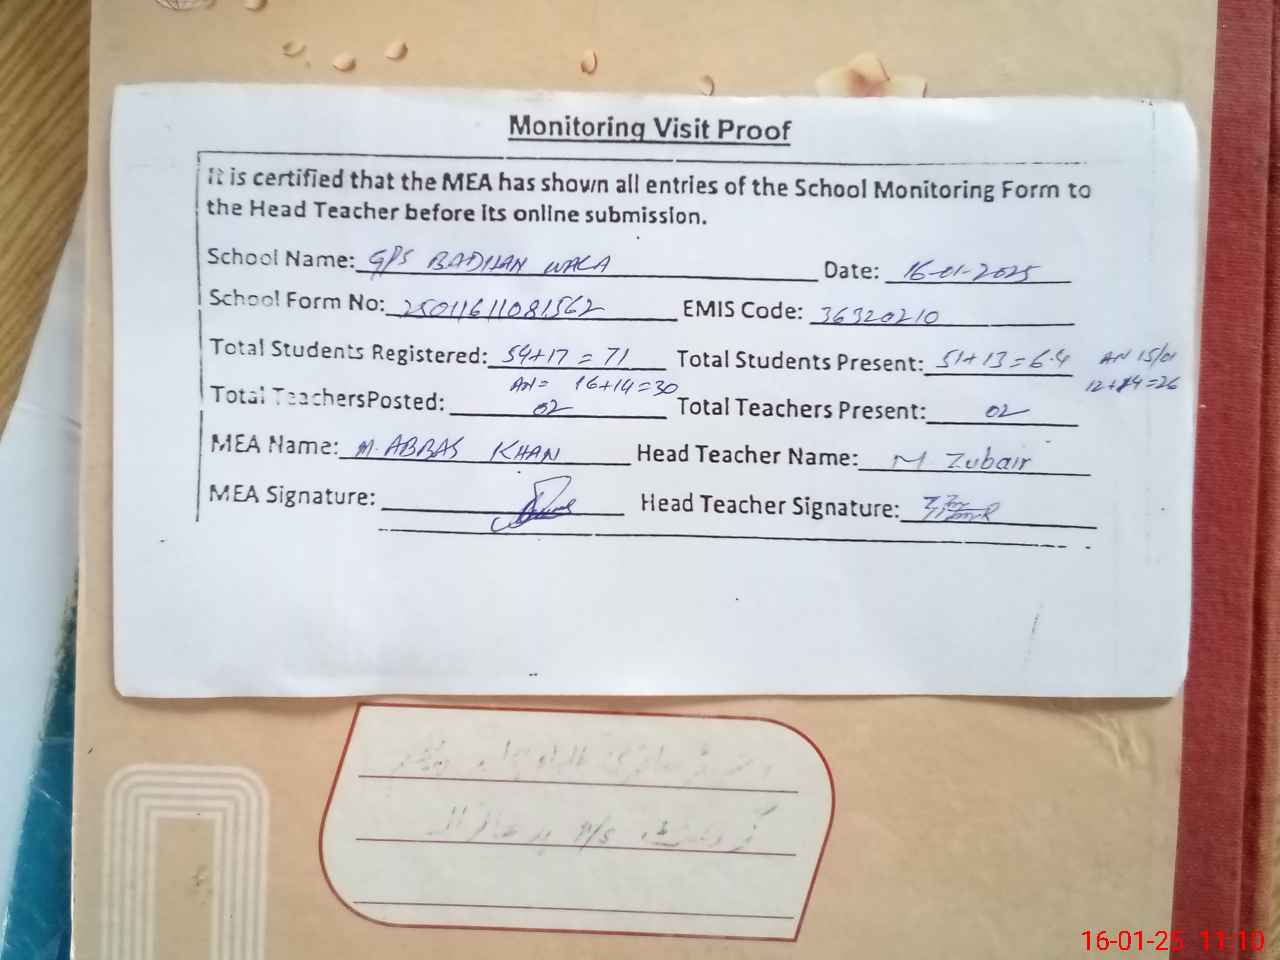 Monitoring Visit Proof
It is certified that the MEA has shown all entries of the School Monitoring Form to
the Head Teacher before its online submission.
School Name: GPS BADHAN WALA Date: 16-01-2025
School Form No: 25011611081562 EMIS Code: 36320210
Total Students Registered: 54+17 = 71 Total Students Present: 51+13 = 64 AN 15/01
AN = 16+14=30 12+14=26
Total TeachersPosted: 02 Total Teachers Present: 02
MEA Name: M. ABBAS KHAN Head Teacher Name: M Zubair
MEA Signature: Head Teacher Signature:
16-01-25 11:10